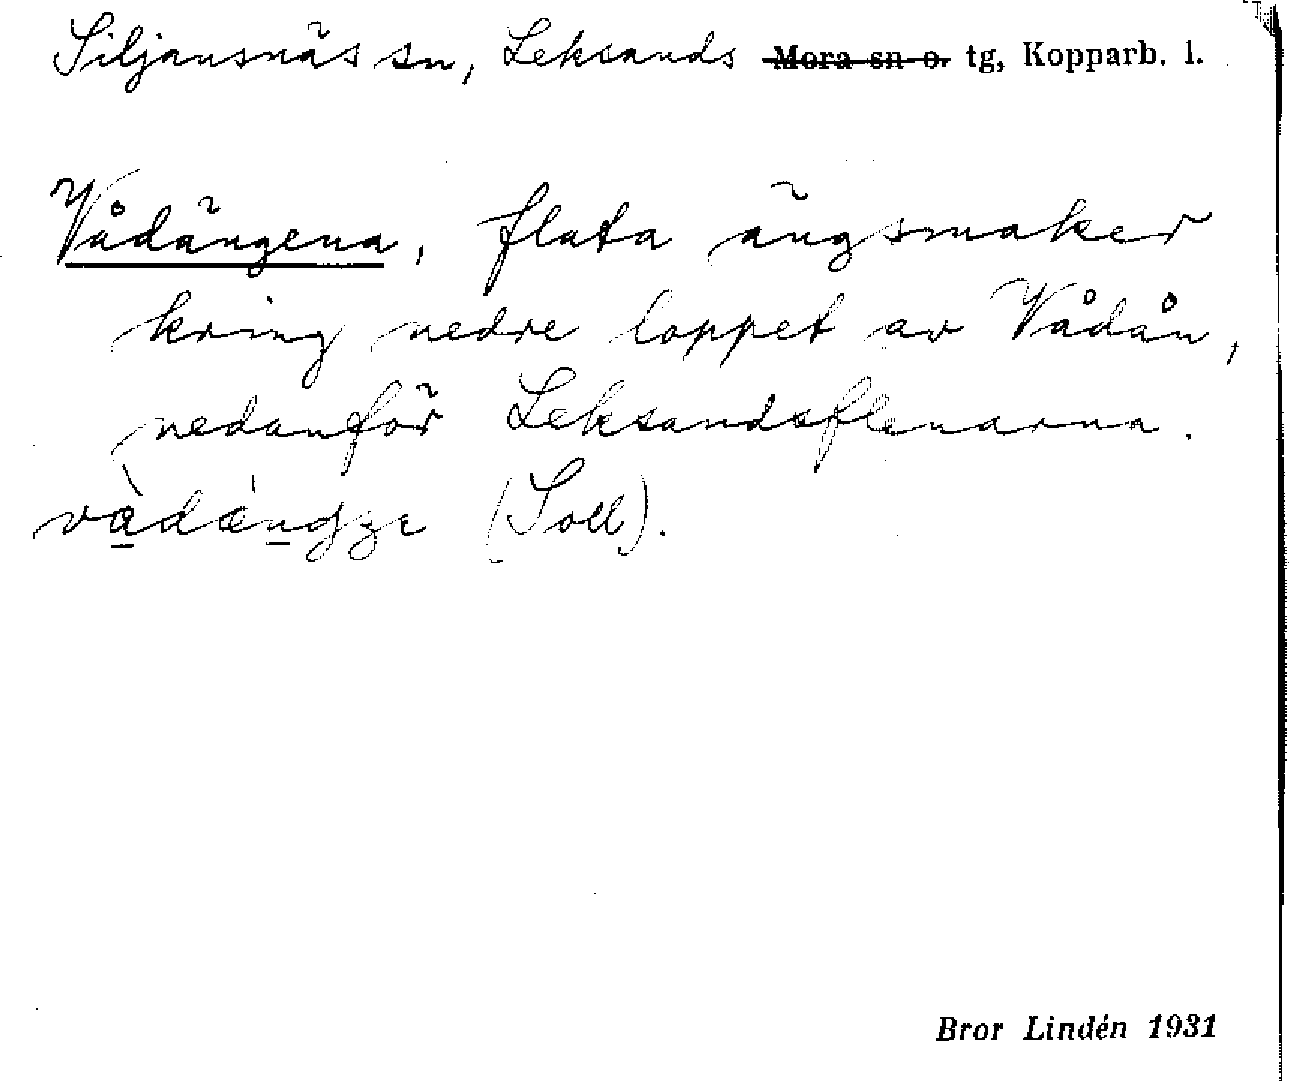 Siljansnäs sn, Leksands Mora sn o. tg, Kopparb. l.
Vådängena, flata ängsmaker
kring nedre loppet av Vådån,
nedanför Leksandsflenarna.
(Soll).
Bror Lindén 1931